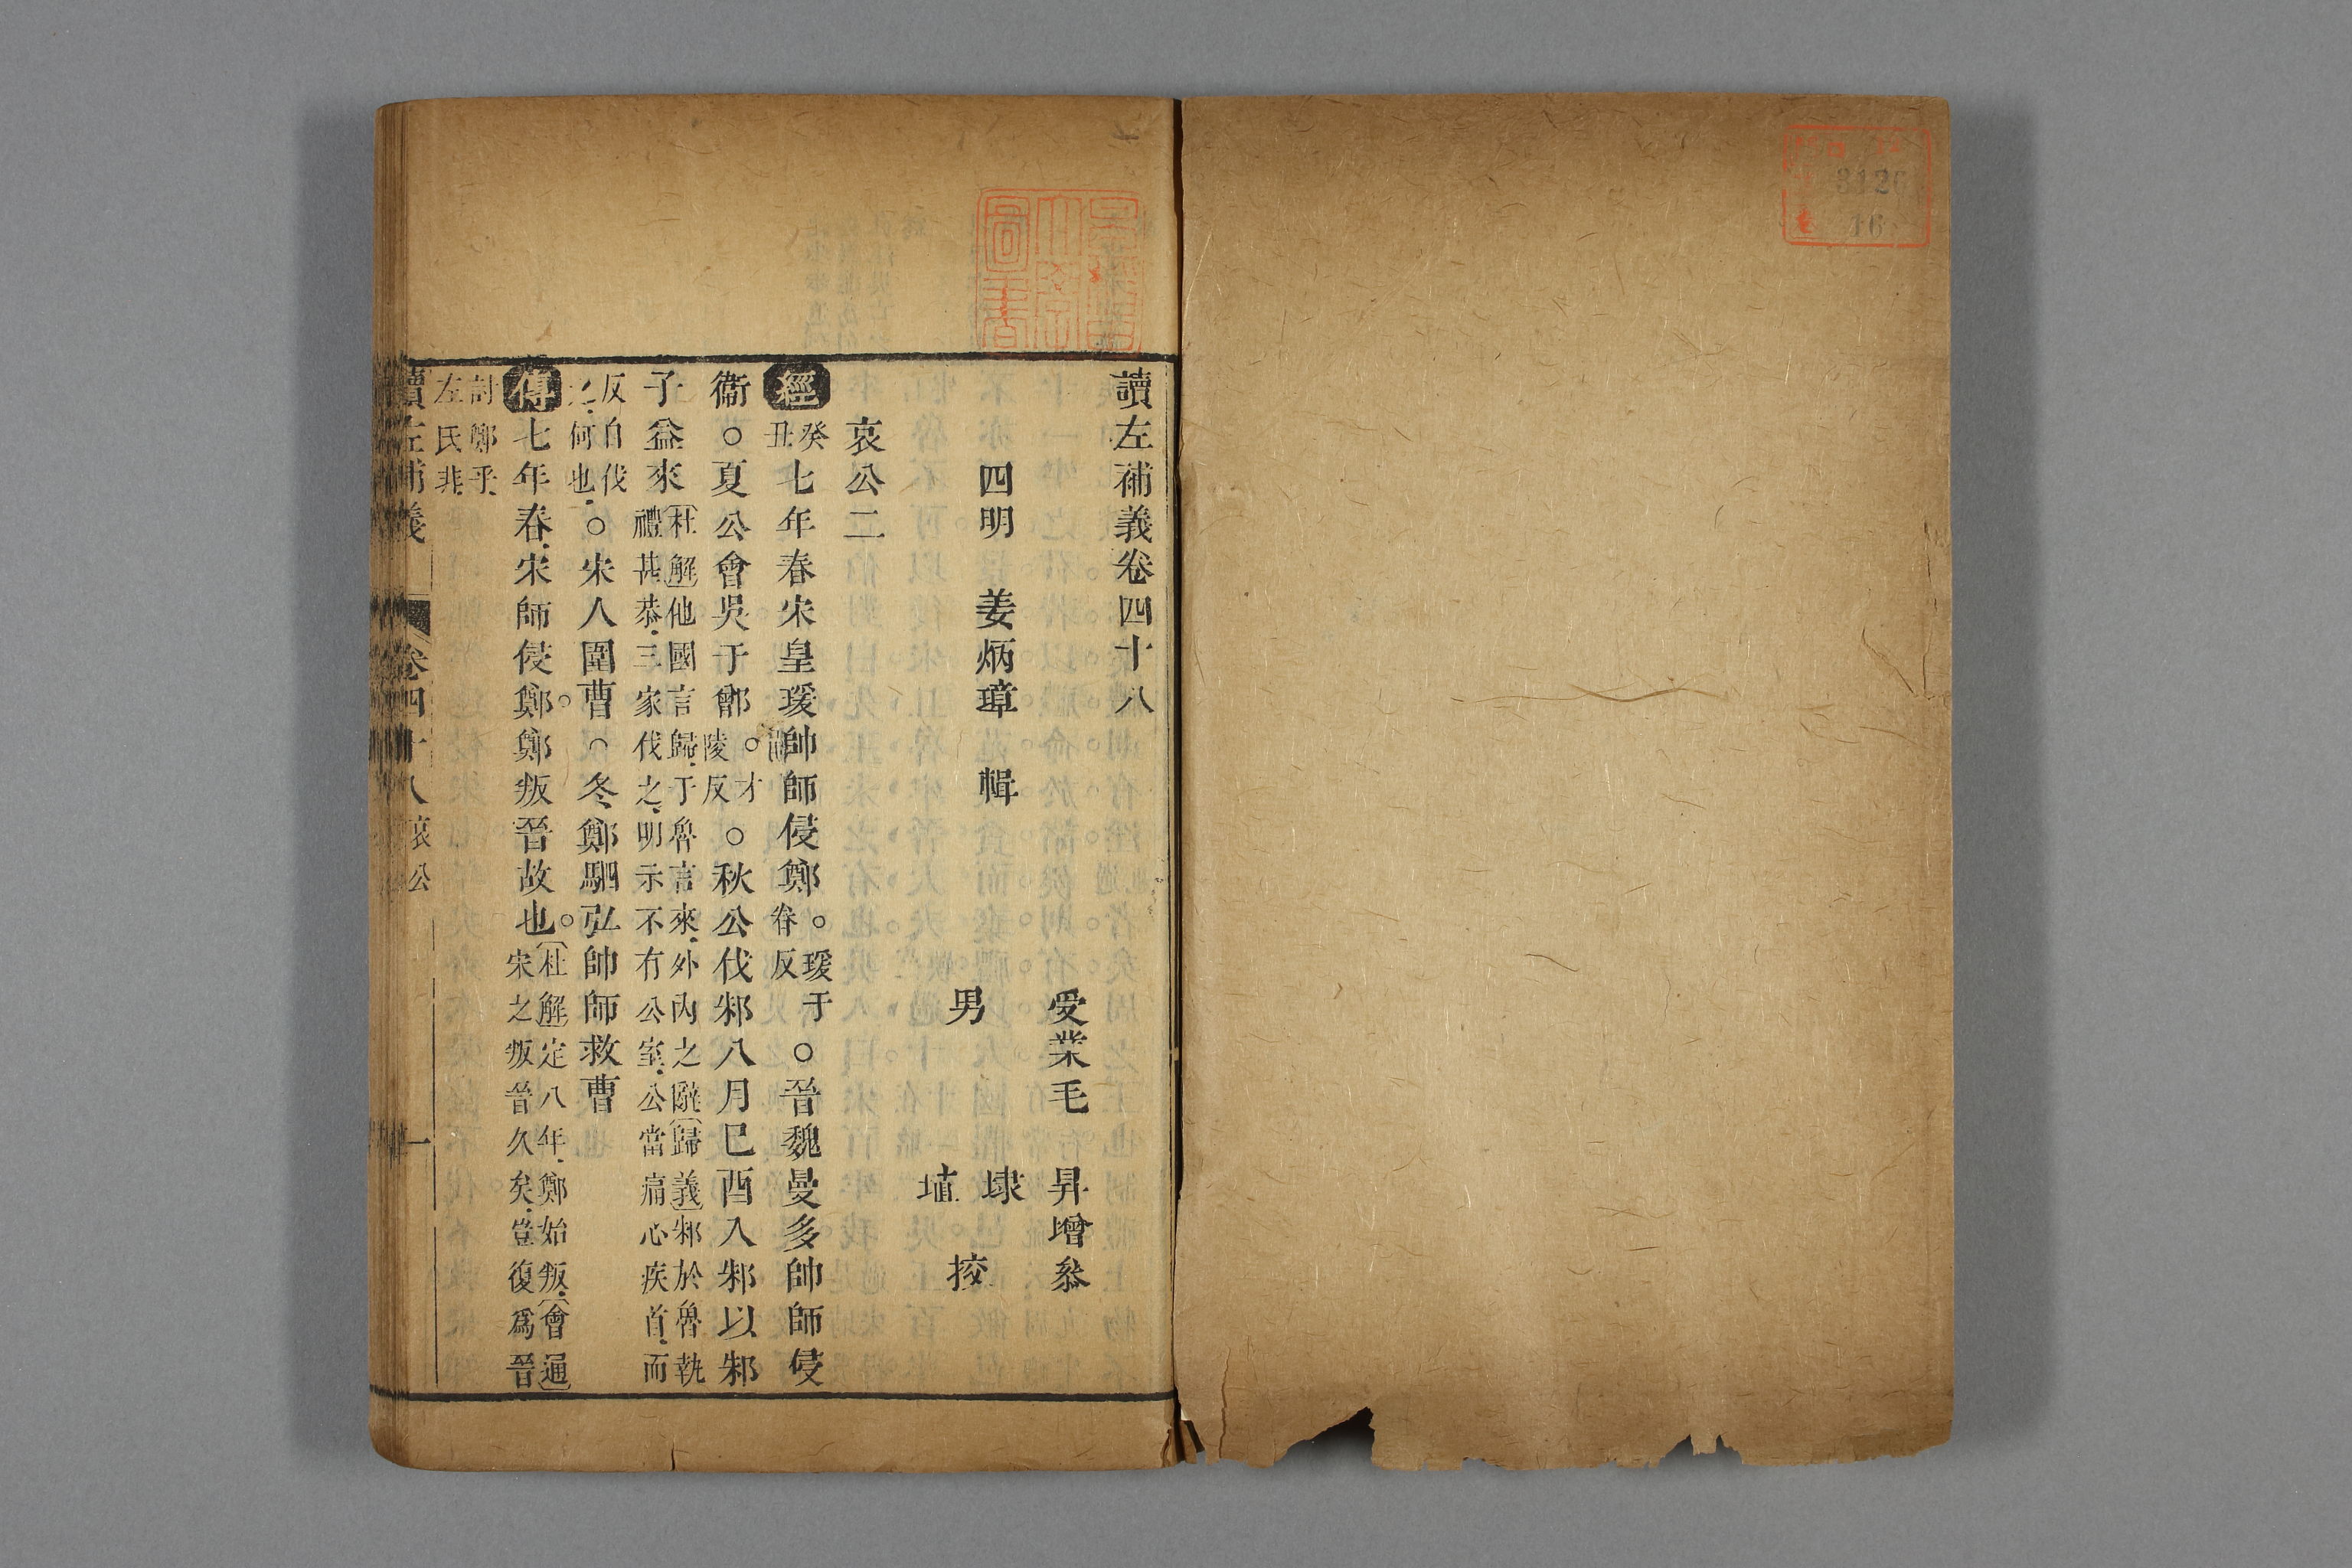 3126
16
早稻田大學圖書
讀左補義卷四十八
受業毛 昇增叅
四明 姜炳璋 輯
男 埭 埴 挍
哀公二
經癸丑七年春宋皇瑗帥師侵鄭。瑗于眷反○晉魏曼多帥師侵
衞○夏公會吳于鄫。才陵反○秋公伐邾八月巳酉入邾以邾
子益來〔杜解〕他國言歸于魯言來外內之辭〔歸義〕邾於魯執禮甚恭三家伐之明示不有公室公當痛心疾首而
反自伐之何也○宋人圍曹○冬鄭駟弘帥師救曹
傳七年春宋師侵鄭。鄭叛晉故也。〔杜解〕定八年鄭始叛〔會通〕宋之叛晉久矣豈復爲晉
討鄭乎左氏非
讀左補義 卷四十八 哀公 一